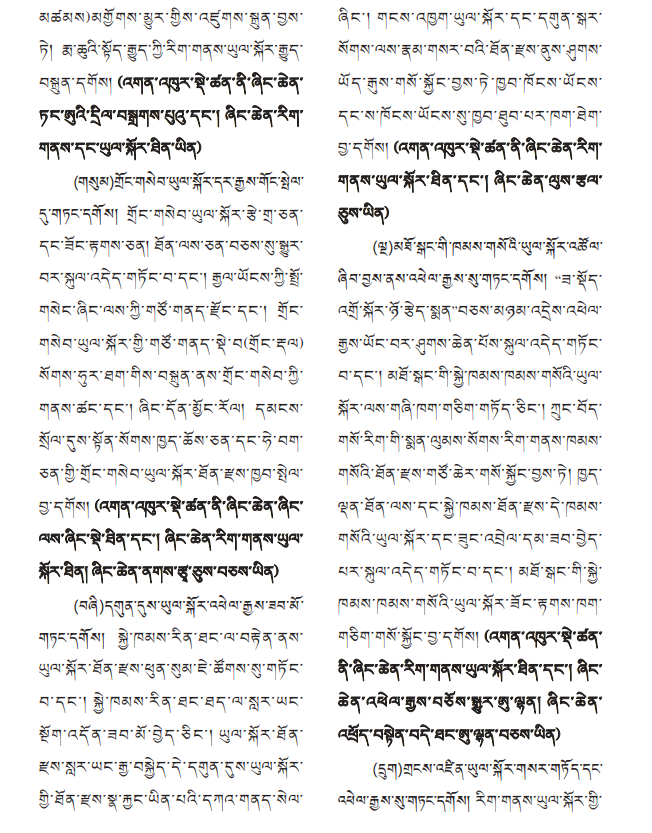 མཚམས)མགྱོགས་མྱུར་གྱིས་འཛུགས་སྐྲུན་བྱས་
ཏེ། རྨ་ཆུའི་སྟོད་རྒྱུད་ཀྱི་རིག་གནས་ཡུལ་སྐོར་རྒྱུད་
བསྐྲུན་དགོས། (འགན་འཁུར་སྡེ་ཚན་ནི་ཞིང་ཆེན་
ཏང་ཨུའི་དྲིལ་བསྒྲགས་པུའུ་དང་། ཞིང་ཆེན་རིག་
གནས་དང་ཡུལ་སྐོར་ཐིན་ཡིན)
(གསུམ)གྲོང་གསེབ་ཡུལ་སྐོར་དར་རྒྱས་གོང་སྤེལ་
དུ་གཏང་དགོས། གྲོང་གསེབ་ཡུལ་སྐོར་རྩེ་གྲ་ཅན་
དང་ཟོང་རྟགས་ཅན། ཐོན་ལས་ཅན་བཅས་སུ་སྒྱུར་
བར་སྐུལ་འདེད་གཏོང་བ་དང་། རྒྱལ་ཡོངས་ཀྱི་སྤྲོ་
གསེང་ཞིང་ལས་ཀྱི་གཙོ་གནད་རྫོང་དང་། གྲོང་
གསེབ་ཡུལ་སྐོར་གྱི་གཙོ་གནད་སྡེ་བ(གྲོང་རྡལ)
སོགས་ཧུར་ཐག་གིས་བསྐྲུན་ནས་གྲོང་གསེབ་ཀྱི་
གནས་ཚང་དང་། ཞིང་དོན་མྱོང་རོལ། དམངས་
སྲོལ་དུས་སྟོན་སོགས་ཁྱད་ཆོས་ཅན་དང་ཧེ་བག་
ཅན་གྱི་གྲོང་གསེབ་ཡུལ་སྐོར་ཐོན་རྫས་ཁྱབ་སྤེལ་
བྱ་དགོས། (འགན་འཁུར་སྡེ་ཚན་ནི་ཞིང་ཆེན་ཞིང་
ལས་ཞིང་སྡེ་ཐིན་དང་། ཞིང་ཆེན་རིག་གནས་ཡུལ་
སྐོར་ཐིན། ཞིང་ཆེན་ནགས་རྩྭ་ཅུས་བཅས་ཡིན)
(བཞི)དགུན་དུས་ཡུལ་སྐོར་འཕེལ་རྒྱས་ཟབ་མོ་
གཏང་དགོས། སྐྱེ་ཁམས་རིན་ཐང་ལ་བརྟེན་ནས་
ཡུལ་སྐོར་ཐོན་རྫས་ཕུན་སུམ་ཇེ་ཚོགས་སུ་གཏོང་
བ་དང་། སྐྱེ་ཁམས་རིན་ཐང་ཐད་ལ་སླར་ཡང་
སྔོག་འདོན་ཟབ་མོ་བྱེད་ཅིང་། ཡུལ་སྐོར་ཐོན་
རྫས་སླར་ཡང་རྒྱ་བསྐྱེད་དེ་དགུན་དུས་ཡུལ་སྐོར་
གྱི་ཐོན་རྫས་སྣ་རྐྱང་ཡིན་པའི་དཀའ་གནད་སེལ་
ཞིང་། གངས་འཁྱག་ཡུལ་སྐོར་དང་དགུན་སྒར་
སོགས་ལས་རྣམ་གསར་བའི་ཐོན་རྫས་ནུས་ཤུགས་
ཡོད་རྒུས་གསོ་སྐྱོང་བྱས་ཏེ་ཁྱབ་ཁོངས་ཡོངས་
དང་ས་ཁོངས་ཡོངས་སུ་ཁྱབ་ཐུབ་པར་ཁག་ཐེག་
བྱ་དགོས། (འགན་འཁུར་སྡེ་ཚན་ནི་ཞིང་ཆེན་རིག་
གནས་ཡུལ་སྐོར་ཐིན་དང་། ཞིང་ཆེན་ལུས་རྩལ་
ཅུས་ཡིན)
(ལྔ)མཐོ་སྒང་གི་ཁམས་གསོའི་ཡུལ་སྐོར་འཚོལ་
ཞིབ་བྱས་ནས་འཕེལ་རྒྱས་སུ་གཏང་དགོས། “ཟ་སྡོད་
འགྲོ་སྐོར་ཉོ་རྩེད་སྨན”བཅས་མཉམ་འདྲེས་འཕེལ་
རྒྱས་ཡོང་བར་ཤུགས་ཆེན་པོས་སྐུལ་འདེད་གཏོང་
བ་དང་། མཐོ་སྒང་གི་སྐྱེ་ཁམས་ཁམས་གསོའི་ཡུལ་
སྐོར་ལས་གཞི་ཁག་གཅིག་གཏོད་ཅིང་། ཀྲུང་བོད་
གསོ་རིག་གི་སྨན་ལུམས་སོགས་རིག་གནས་ཁམས་
གསོའི་ཐོན་རྫས་གཙོ་ཆེར་གསོ་སྐྱོང་བྱས་ཏེ། ཁྱད་
ལྡན་ཐོན་ལས་དང་སྐྱེ་ཁམས་ཐོན་རྫས་དེ་ཁམས་
གསོའི་ཡུལ་སྐོར་དང་ཟུང་འབྲེལ་དམ་ཟབ་བྱེད་
པར་སྐུལ་འདེད་གཏོང་བ་དང་། མཐོ་སྒང་གི་སྐྱེ་
ཁམས་ཁམས་གསོའི་ཡུལ་སྐོར་ཟོང་རྟགས་ཁག་
གཅིག་གསོ་སྐྱོང་བྱ་དགོས། (འགན་འཁུར་སྡེ་ཚན་
ནི་ཞིང་ཆེན་རིག་གནས་ཡུལ་སྐོར་ཐིན་དང་། ཞིང་
ཆེན་འཕེལ་རྒྱས་བཅོས་སྒྱུར་ཨུ་ལྷན། ཞིང་ཆེན་
འཕྲོད་བསྟེན་བདེ་ཐང་ཨུ་ལྷན་བཅས་ཡིན)
(དྲུག)གྲངས་འཛིན་ཡུལ་སྐོར་གསར་གཏོད་དང་
འཕེལ་རྒྱས་སུ་གཏང་དགོས། རིག་གནས་ཡུལ་སྐོར་གྱི་